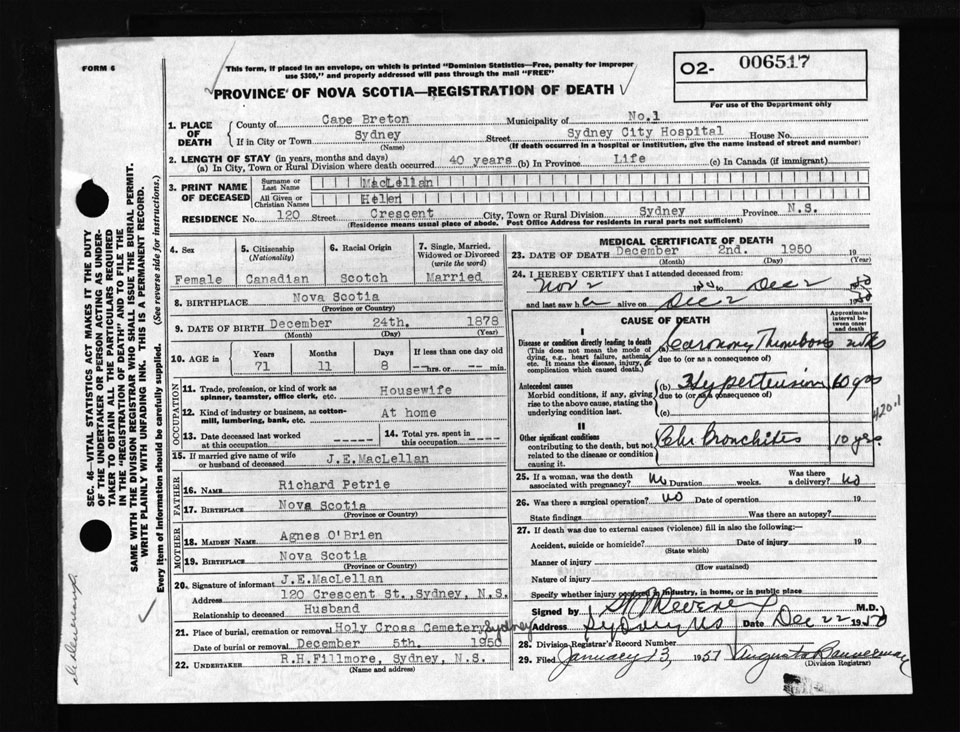 FORM 6
This form, if placed in an envelope, on which is printed "Dominion Statistics—Free, penalty for improper
use $300," and properly addressed will pass through the mail "FREE"
PROVINCE OF NOVA SCOTIA—REGISTRATION OF DEATH
O2- 006517
For use of the Department only
1. PLACE OF DEATH
County of Cape Breton Municipality of No.1
If in City or Town Sydney Street Sydney City Hospital House No.
(Name) (If death occurred in a hospital or institution, give the name instead of street and number)
2. LENGTH OF STAY (in years, months and days)
(a) In City, Town or Rural Division where death occurred 40 years (b) In Province Life (c) In Canada (if immigrant)
3. PRINT NAME OF DECEASED
Surname or Last Name MacLellan
All Given or Christian Names Helen
RESIDENCE No. 120 Street Crescent City, Town or Rural Division Sydney Province N.S.
(Residence means usual place of abode. Post Office Address for residents in rural parts not sufficient)
4. Sex
Female
5. Citizenship
(Nationality)
Canadian
6. Racial Origin
Scotch
7. Single, Married, Widowed or Divorced
(write the word)
Married
8. BIRTHPLACE Nova Scotia
(Province or Country)
9. DATE OF BIRTH December 24th. 1878
(Month) (Day) (Year)
10. AGE in
Years Months Days If less than one day old
71 11 8 hrs. or min.
OCCUPATION
11. Trade, profession, or kind of work as
spinner, teamster, office clerk, etc. Housewife
12. Kind of industry or business, as cotton-
mill, lumbering, bank, etc. At home
13. Date deceased last worked
at this occupation -----
14. Total yrs. spent in
this occupation -----
15. If married give name of wife
or husband of deceased J.E.MacLellan
FATHER
16. NAME Richard Petrie
17. BIRTHPLACE Nova Scotia
(Province or Country)
MOTHER
18. MAIDEN NAME Agnes O'Brien
19. BIRTHPLACE Nova Scotia
(Province or Country)
20. Signature of informant J.E.MacLellan
Address 120 Crescent St.,Sydney, N.S.
Relationship to deceased Husband
21. Place of burial, cremation or removal Holy Cross Cemetery, Sydney
Date of burial or removal December 5th. 1950
22. UNDERTAKER R.H.Fillmore, Sydney, N.S.
(Name and address)
MEDICAL CERTIFICATE OF DEATH
23. DATE OF DEATH December 2nd. 1950 19
(Month) (Day) (Year)
24. I HEREBY CERTIFY that I attended deceased from:
Nov 2 1950 to Dec 2 1950
and last saw her alive on Dec 2 1950
CAUSE OF DEATH
Approximate interval between onset and death
I
Disease or condition directly leading to death
(This does not mean the mode of
dying, e.g., heart failure, asthenia,
etc. It means the disease, injury, or
complication which caused death.)
(a) Coronary Thrombosis
due to (or as a consequence of)
Antecedent causes
Morbid conditions, if any, giving
rise to the above cause, stating the
underlying condition last.
(b) Hypertension 10 yrs
due to (or as a consequence of)
(c)
420.1
II
Other significant conditions
contributing to the death, but not
related to the disease or condition
causing it.
Chr Bronchites 10 yrs.
25. If a woman, was the death
associated with pregnancy? no Duration weeks. Was there a delivery? no
26. Was there a surgical operation? no Date of operation 19
State findings Was there an autopsy?
27. If death was due to external causes (violence) fill in also the following:—
Accident, suicide or homicide? Date of injury 19
(State which)
Manner of injury
(How sustained)
Nature of injury
Specify whether injury occurred in industry, in home, or in public place
Signed by M.D.
Address Sydney NS Date Dec 22 1950
28. Division Registrar's Record Number
29. Filed January 13, 1951 Augusta Bannerman
(Division Registrar)
SEC. 46—VITAL STATISTICS ACT MAKES IT THE DUTY
OF THE UNDERTAKER OR PERSON ACTING AS UNDER-
TAKER TO OBTAIN ALL THE PARTICULARS REQUIRED
IN THE "REGISTRATION OF DEATH" AND TO FILE THE
SAME WITH THE DIVISION REGISTRAR WHO SHALL ISSUE THE BURIAL PERMIT.
WRITE PLAINLY WITH UNFADING INK. THIS IS A PERMANENT RECORD.
Every item of information should be carefully supplied. (See reverse side for instructions.)